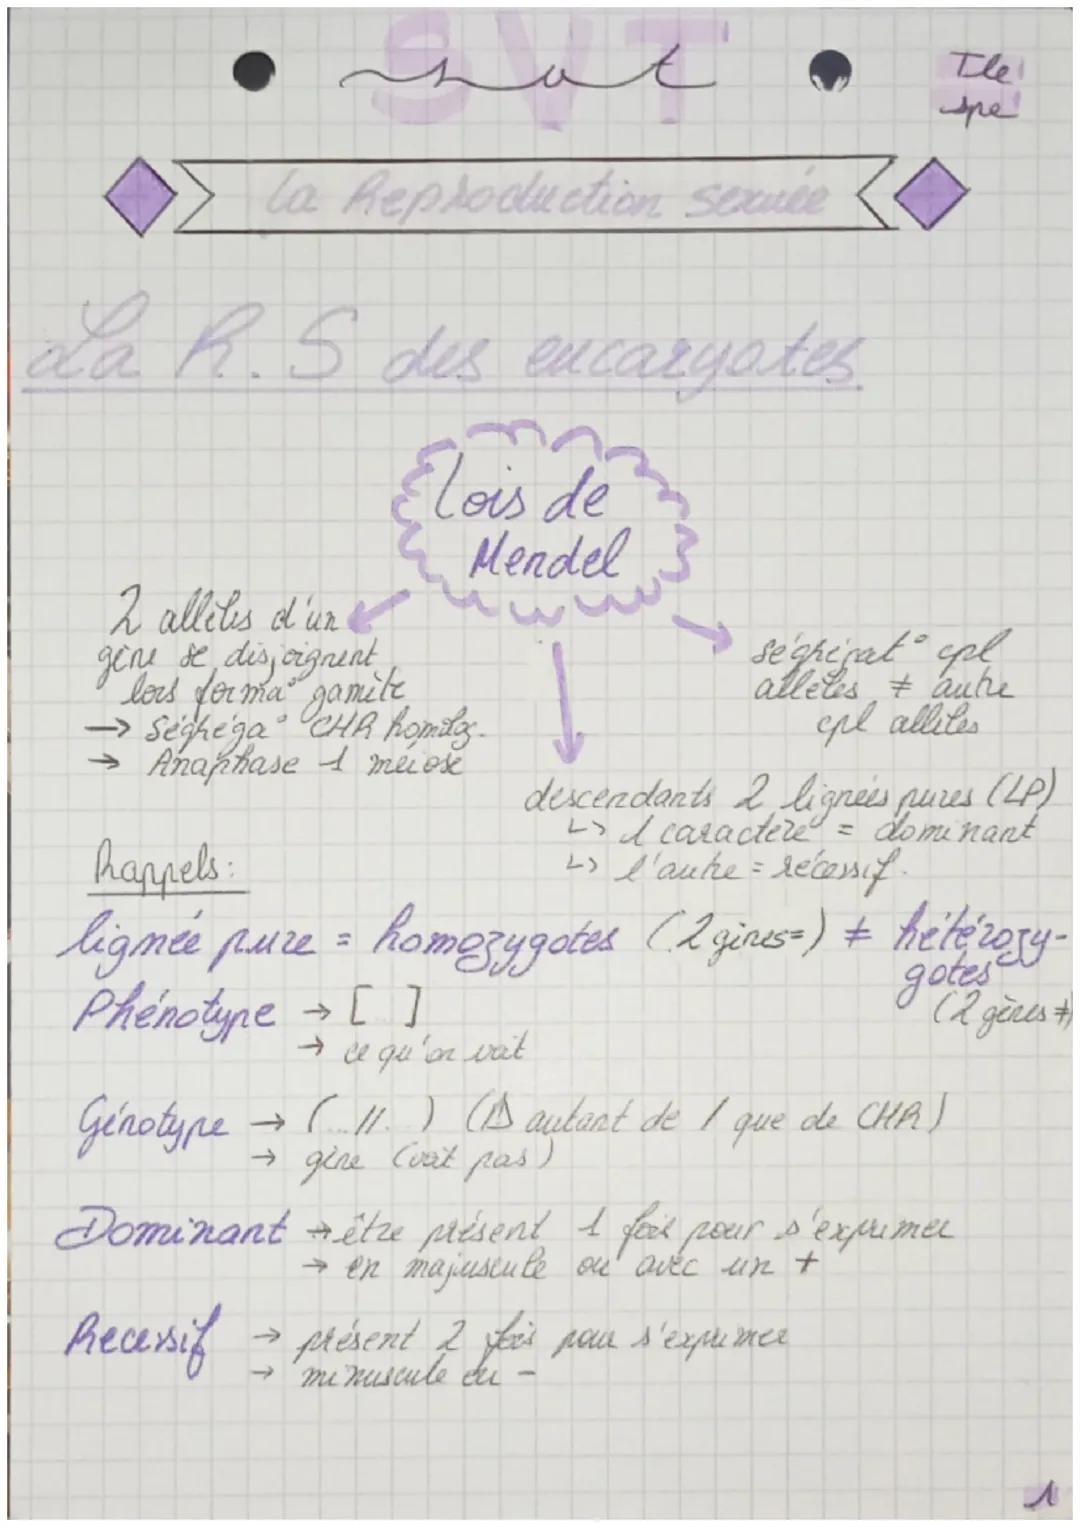 SVT
svt
Tle
spe
La Reproduction sexuée
La R.S des eucaryotes
Lois de
Mendel
2 allèles d'un
gène se disjoignent
lors forma° gamète
→ Ségréga° CHR homolog.
→ Anaphase 1 méiose
ségrégat° cpl
allèles ≠ autre
cpl allèles
descendants 2 lignées pures (LP)
↳ 1 caractère = dominant
↳ l'autre = récessif.
Rappels:
lignée pure = homozygotes (2 gènes=) ≠ hétérozy-
gotes
(2 gènes ≠)
Phénotype → [ ]
→ ce qu'on voit
Génotype → (...//...) (⚠ autant de / que de CHR)
→ gène (voit pas)
Dominant → être présent 1 fois pour s'exprimer
→ en majuscule ou avec un +
Recessif → présent 2 fois pour s'exprimer
→ minuscule ou -
1